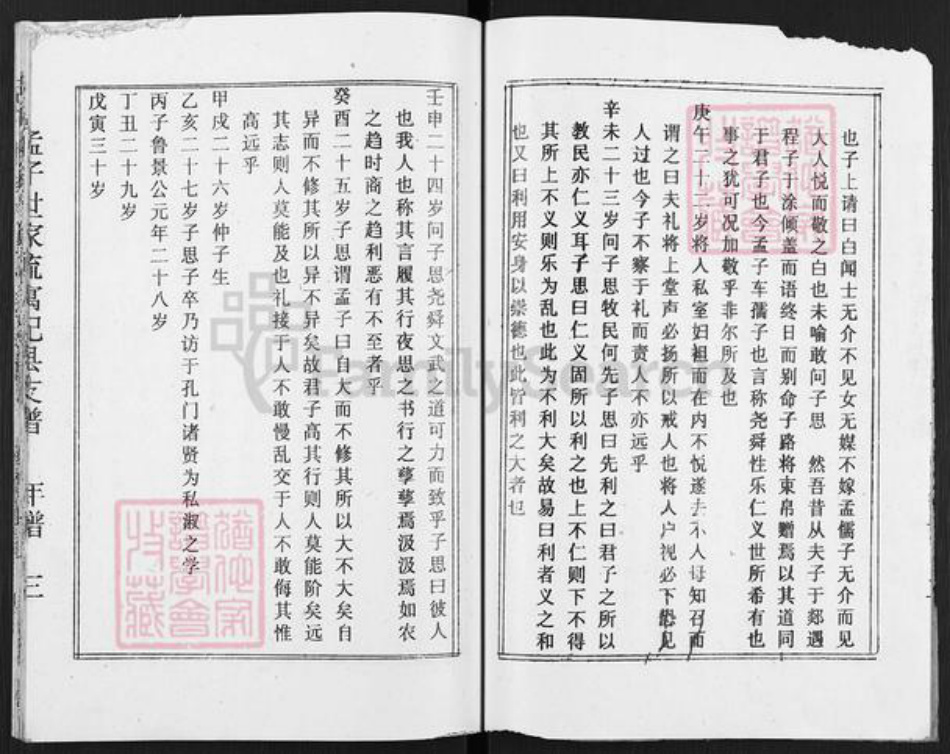 也子上请曰白闻士无介不见女无媒不嫁孟儒子无介而见
大人悦而敬之白也未喻敢问子思 然吾昔从夫子于郯遇
程子于涂倾盖而语终日而别命子路将束帛赠焉以其道同
于君子也今孟子车孺子也言称尧舜性乐仁义世所希有也
事之犹可况加敬乎非尔所及也
庚午二十二岁将人私室妇袒而在内不悦遂去不人母知召而
谓之曰夫礼将上堂声必扬所以戒人也将人户视必下恐见
人过也今子不察于礼而责人不亦远乎
辛未二十三岁问子思牧民何先子思曰先利之曰君子之所以
教民亦仁义耳子思曰仁义固所以利之也上不仁则下不得
其所上不义则乐为乱也此为不利大矣故易曰利者义之和
也又曰利用安身以崇德也此皆利之大者也
壬申二十四岁问子思尧舜文武之道可力而致乎子思曰彼人
也我人也称其言履其行夜思之书行之孳孳焉汲汲焉如农
之趋时商之趋利恶有不至者乎
癸酉二十五岁子思谓孟子曰自大而不修其所以大不大矣自
异而不修其所以异不异矣故君子高其行则人莫能阶矣远
其志则人莫能及也礼接于人人不敢慢乱交于人不敢侮其惟
高远乎
甲戌二十六岁仲子生
乙亥二十七岁子思子卒乃访于孔门诸贤为私淑之学
丙子鲁景公元年二十八岁
丁丑二十九岁
戊寅三十岁
孟子世家流寓记县支谱 年谱 三
FamilySearch